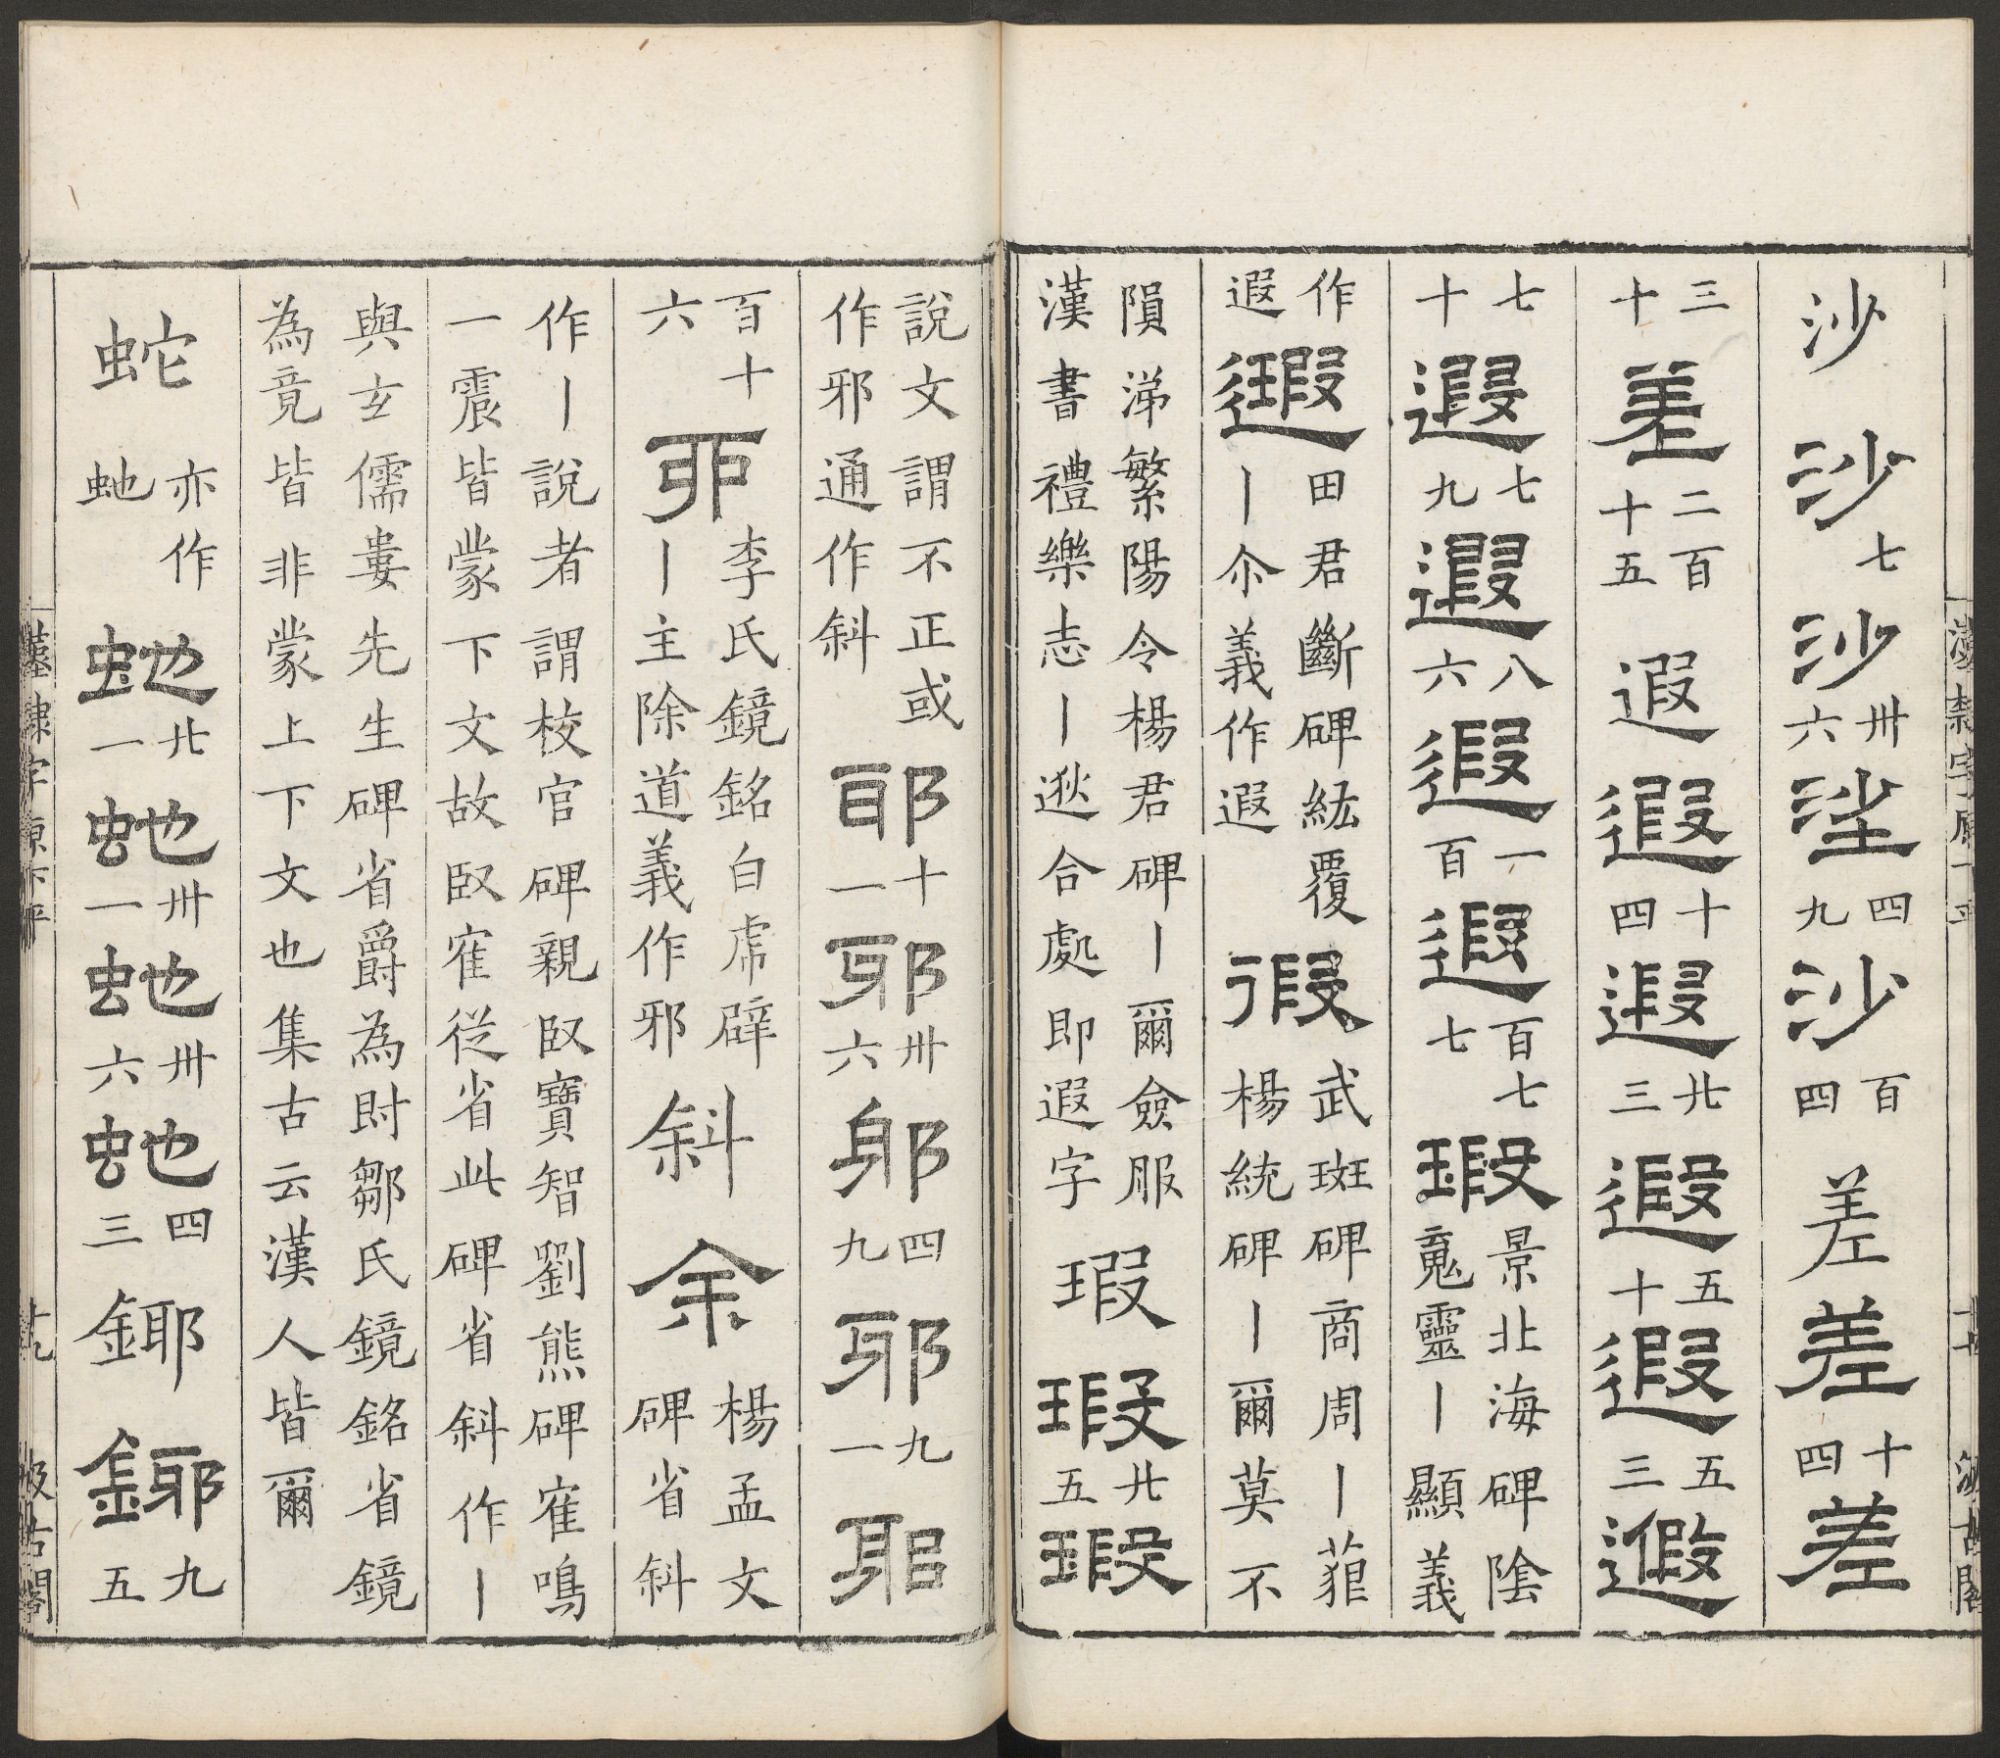 沙 沙 七 沙 卅六 沙 四九 沙 百四 差 差 十四 差
三十 差 二百十五 遐 遐 十四 遐 廿三 遐 五十 遐 五三 遐
七十 遐 七九 遐 八六 遐 一百 遐 百七七 瑕 景北海碑陰魂靈丨顯義
作遐 遐 田君斷碑紘覆丨尒義作遐 徦 武斑碑商周丨藐楊統碑丨爾莫不
隕涕繁陽令楊君碑丨爾僉服漢書禮樂志丨逖合處即遐字 瑕 瑕 廿五 瑕
漢隸字原下平 十九 汲古閣
說文謂不正或作邪通作斜 耶 十一 邪 卅六 邪 四九 邪 九一 耶
百十六 邪 李氏鏡銘白虎辟丨主除道義作邪 斜 余 楊孟文碑省斜
作丨說者謂校官碑親臤寶智劉熊碑寉鳴一震皆蒙下文故臤寉從省此碑省斜作丨
與玄儒婁先生碑省爵為尌鄒氏鏡銘省鏡為竟皆非蒙上下文也集古云漢人皆爾
蛇 亦作虵 虵 廿一 虵 卅一 虵 卅六 虵 四三 鋣 鋣 九五
漢隸字原下平 十九 汲古閣